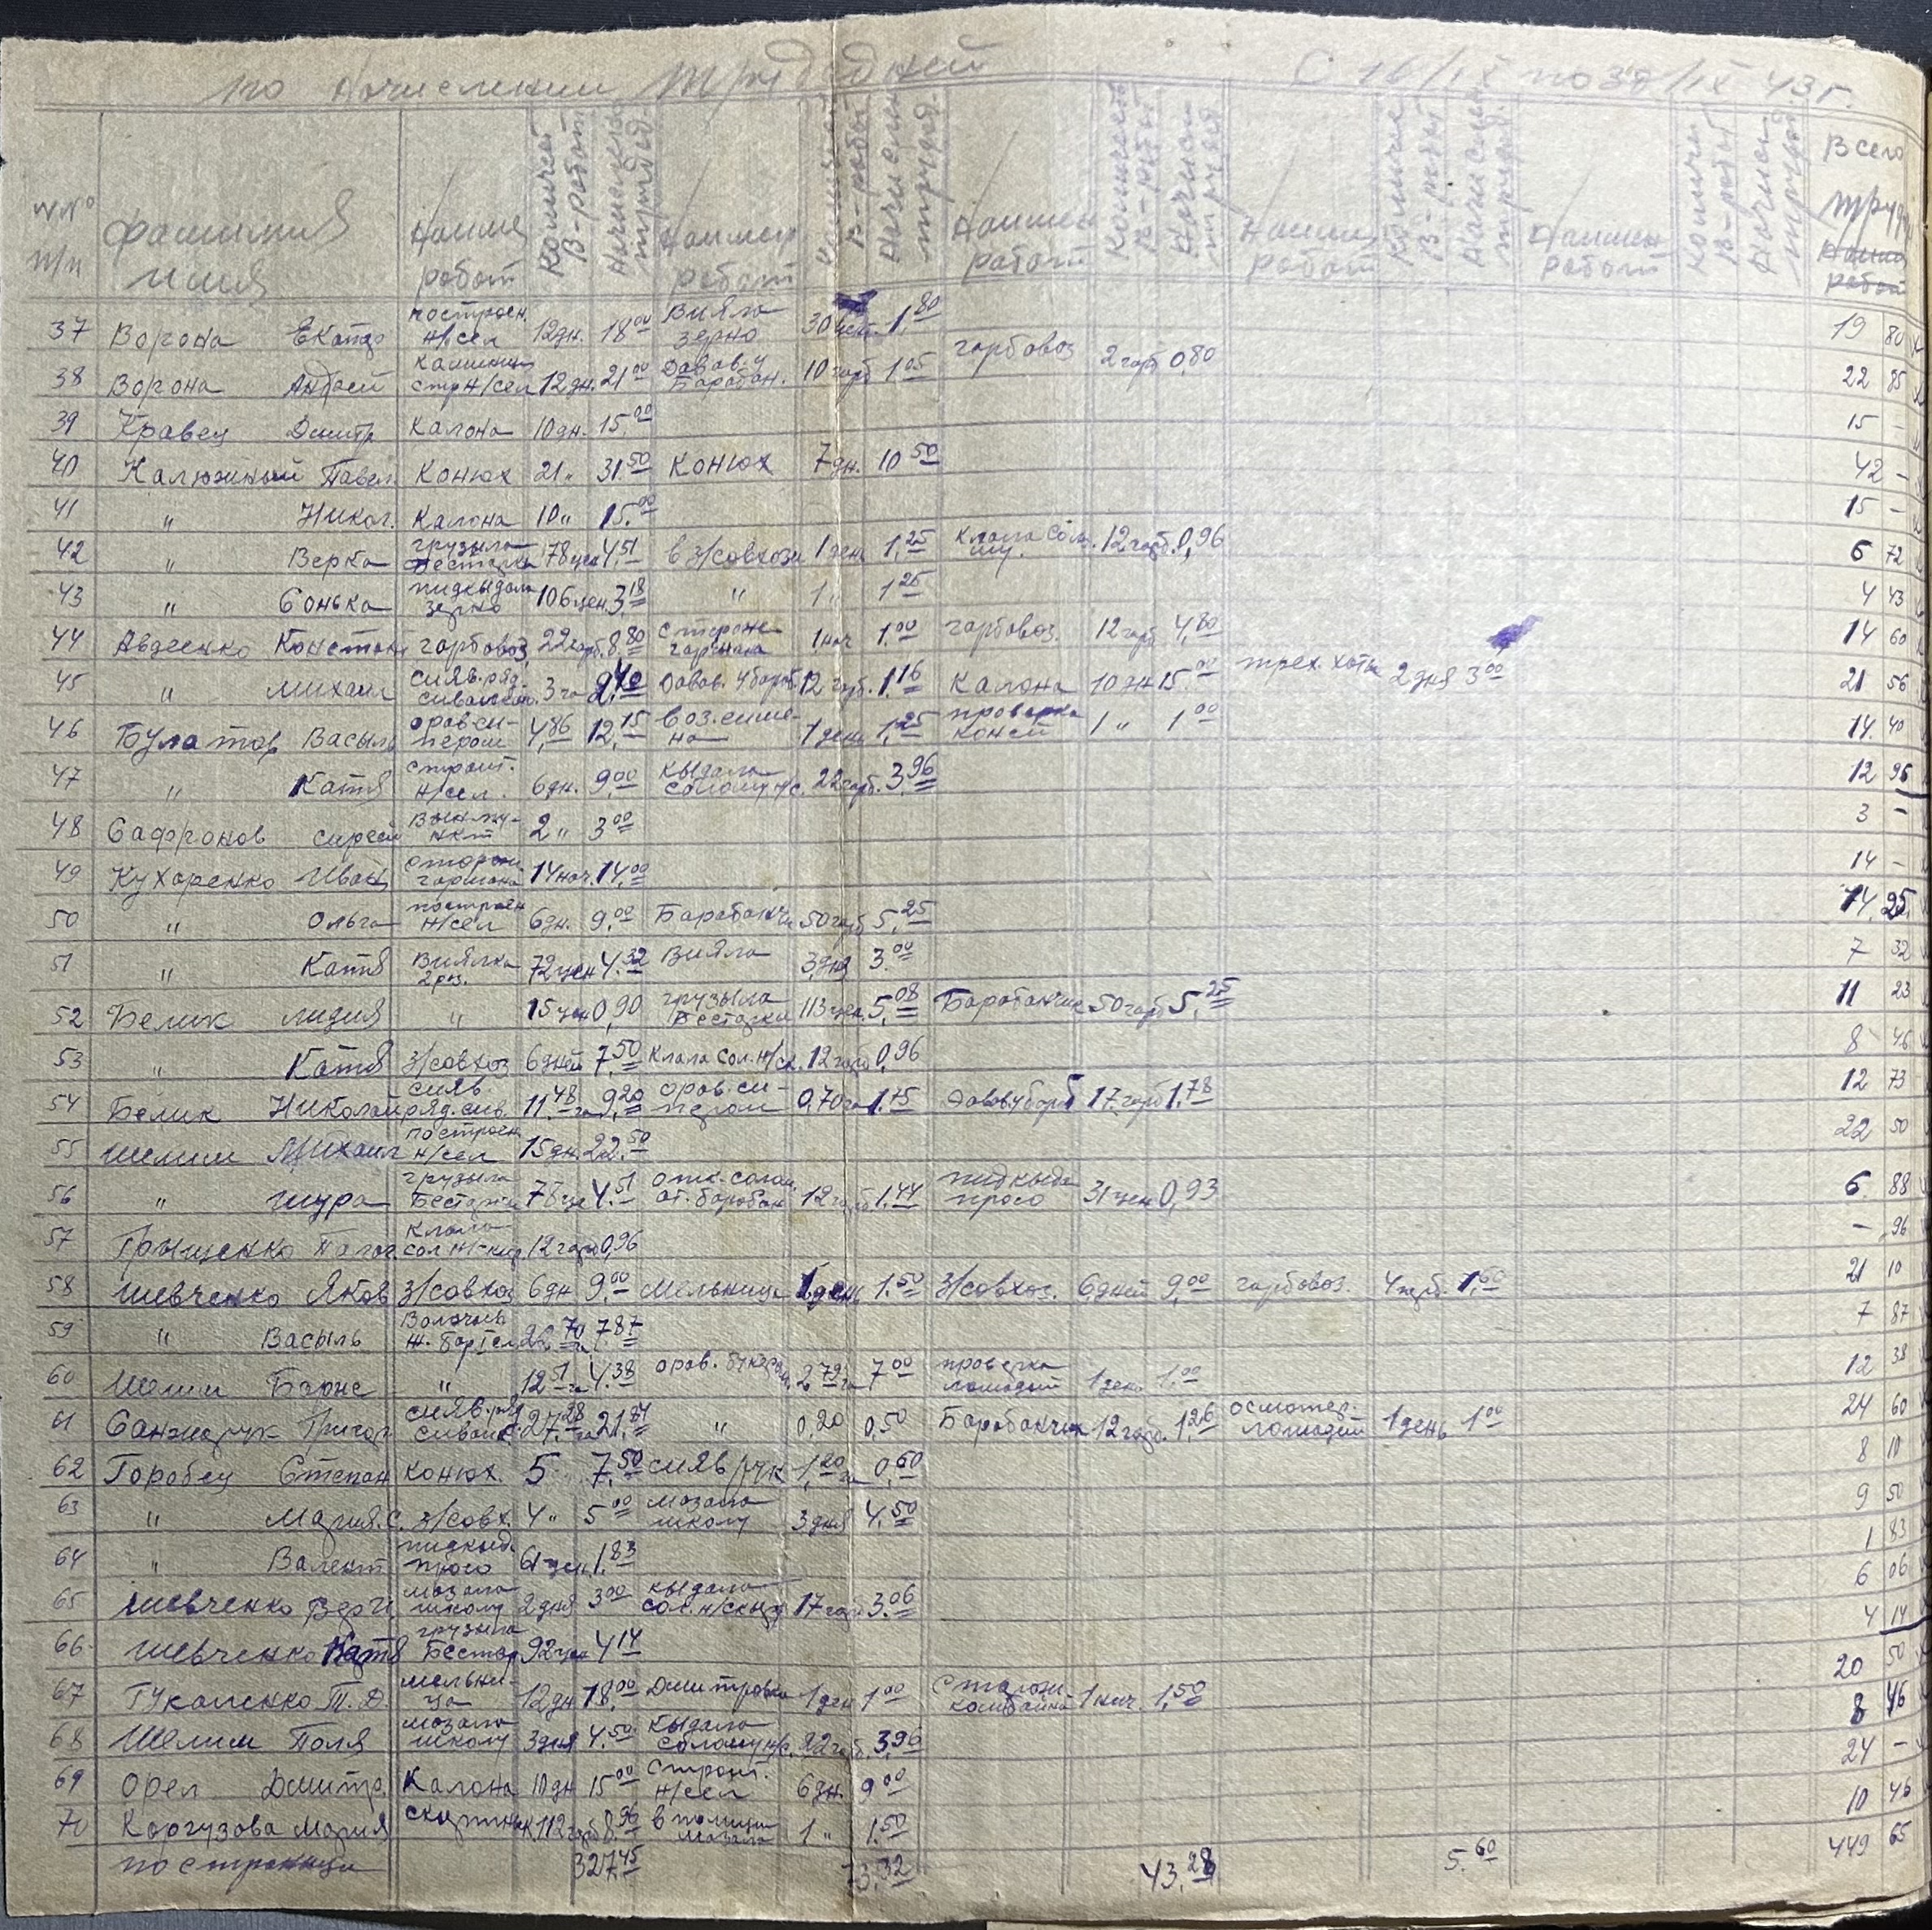 по начислении трудодней с 16/IX по 30/IX 43 г.
№№ п/п фамилия имя Наимен работ Количест в-работ Начислено трудод. Наимен работ в-работ Начислен трудод. Наимен работ Количест в-работ Начисл трудод Наимен работ Количес в-работ Начислен трудод. Наимен работ Количес в-работ Начисл трудод. Всего труд
37 Ворона Екатер построен. н/сел 12 дн. 18.00 Вияла зерно 30 цен. 1.80 19 80
38 Ворона Андрей стр н/сел 12 дн. 21.00 Давав. у Барабан. 10 гарб 1.05 гарбовоз 2 гарб 0,80 22 85
39 Кравец Дмитр Калона 10 дн. 15.00 15 -
40 Калюжный Павел Конюх 21 " 31.50 Конюх 7 дн. 10 50 42 -
41 " Никол. Калона 10 " 15.00 15 -
42 " Верка грузыла Бестарки 78 цен 4.51 в з/совхози 1 день 1.25 клала солому. 12 гарб. 0,96 6 72
43 " Сонька пидкыдала зерно 106 цен. 3.18 " 1 " 1 25 4 43
44 Авдеенко Констант гарбовоз 22 гарб. 8.80 стороже гармана 1 ноч 1.00 гарбовоз. 12 гарб 4,80 14 60
45 " Михаил сияв. ряд. сивалкою. 3 га 2,40 Давав. у бараб. 12 гарб. 1.16 Калона 10 дн 15.00 2 дня 3 00 21 56
46 Булатов Васыль орав си- пером 4,86 12,15 воз. сине- на 1 день 1,25 проверка коней 1 " 1 00 14. 40
47 " Катя строит. н/сел. 6 дн. 9.00 кыдала солому н/с. 22 гарб. 3.96 12 96
48 Сафронов Сергей 2 " 3 00 3 -
49 Кухаренко Иван сторож гармана 14 ноч. 14.00 14 -
50 " Ольга построен н/сел 6 дн. 9.00 Барабанчи 50 гарб 5,25 14,25.
51 " Катя Виялка 2 раз. 72 цен 4.32 Вияла 3 дня 3.00 7 32
52 Белик Лидия " 15 цен 0,90 грузыла Бестарки 113 цен. 5.08 Барабанчик 50 гарб 5,25 11 23
53 " Катя з/совхоз 6 дней 7.50 клала сол. н/ск. 12 гарб 0,96 8 46
54 Белик Николай сияв ряд. сив. 11.48 га 9.20 орав. си- пером 0,70 га 1.75 Давав у бараб 17. гарб 1.78 12 73
55 Шелим Михаил построен н/сел 15 дн. 22.50 22 50
56 " Шура грузыла Бестарки 78 це 4.51 отк. солом. от. барабан 12 гарб 1.44 пидкыда просо 31 цен 0,93 6 88
57 Грыщенко Палаг. клала сол н/скир. 12 гарб 0,96 - 96
58 Шевченко Яков з/совхоз 6 дн 9.00 Мельница 1 день 1.50 з/совхоз. 6 дней 9,00 гарбовоз. 4 гарб. 1,60 21 10
59 " Васыль 22.70 га 7.87 7 87
60 Шелим " 12 51 га 4.38 орав. букеро 2,79 га 7.00 проверка лошадей 1 день 1.00 12 38
61 Санжарук Григор. сияв. ряд сивалк. 27.28 га 21.84 " 0,20 0,50 Барабанчик 12 гарб. 1,26 осмотр. лошадей 1 день 1 00 24 60
62 Горобец Степан конюх. 5 7.50 сияв рук 1,20 га 0,60 8 10
63 " Мария. С. з/совх. 4 " 5 00 мазала школу 3 дня 4.50 9 50
64 " Валент пидкыд. просо 61 цен. 1.83 1 83
65 Шевченко мазала школу 2 дня 3 00 кыдала сол. н/скыр 17 гарб 3.06 6 06
66 Шевченко Катя грузыла Бестар 92 цен 4 14 4 14
67 Гукаленко Т. Д. мельни- ца 12 дн 18.00 Дмитровка 1 ден 1 00 сторож. комбайна 1 ноч. 1,50 20 50
68 Шелим Поля мазала школу 3 дня 4.50 кыдала солому н/с. 22 гарб. 3,96 8 46
69 Орел Дмитр. Калона 10 дн 15.00 строит. н/сел 6 дн. 9 00 24 -
70 Коргузова Мария скыртник 112 гарб 8.96 в полиции мазала 1 " 1.50 10 46
по страници 327.45 73.32 43.28 5.60 449 65